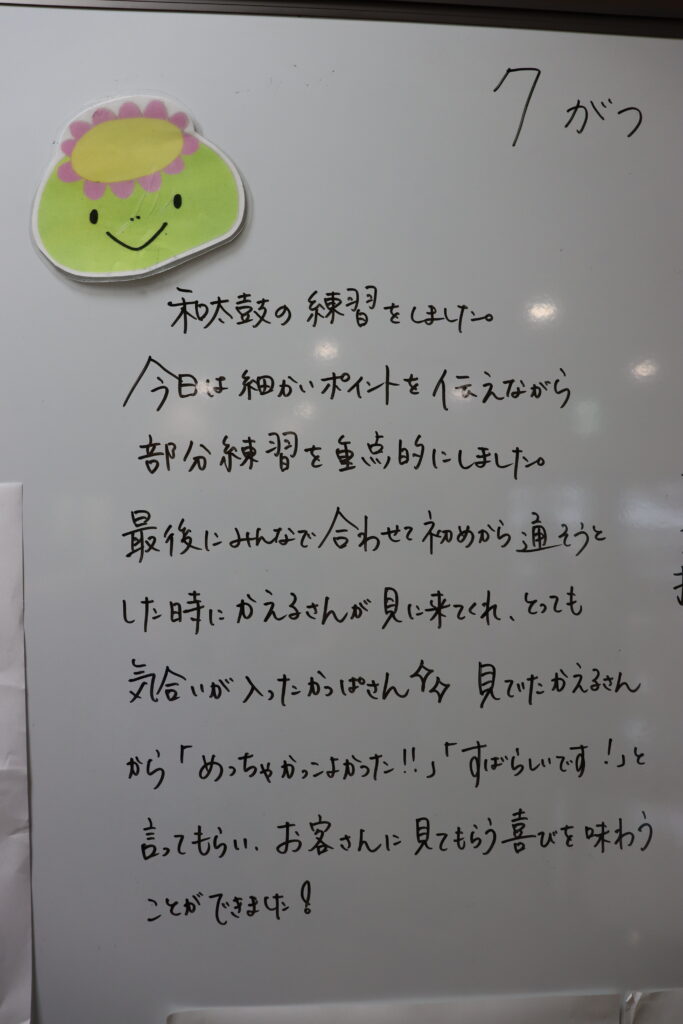 7がつ
和太鼓の練習をしました。
今日は細かいポイントを伝えながら
部分練習を重点的にしました。
最後にみんなで合わせて初めから通そうと
した時にかえるさんが見に来てくれ、とっても
気合いが入ったかっぱさん 見でたかえるさん
から「めっちゃかっこよかった!!」「すばらしいです!」と
言ってもらい、お客さんに見てもらう喜びを味わう
ことができました!